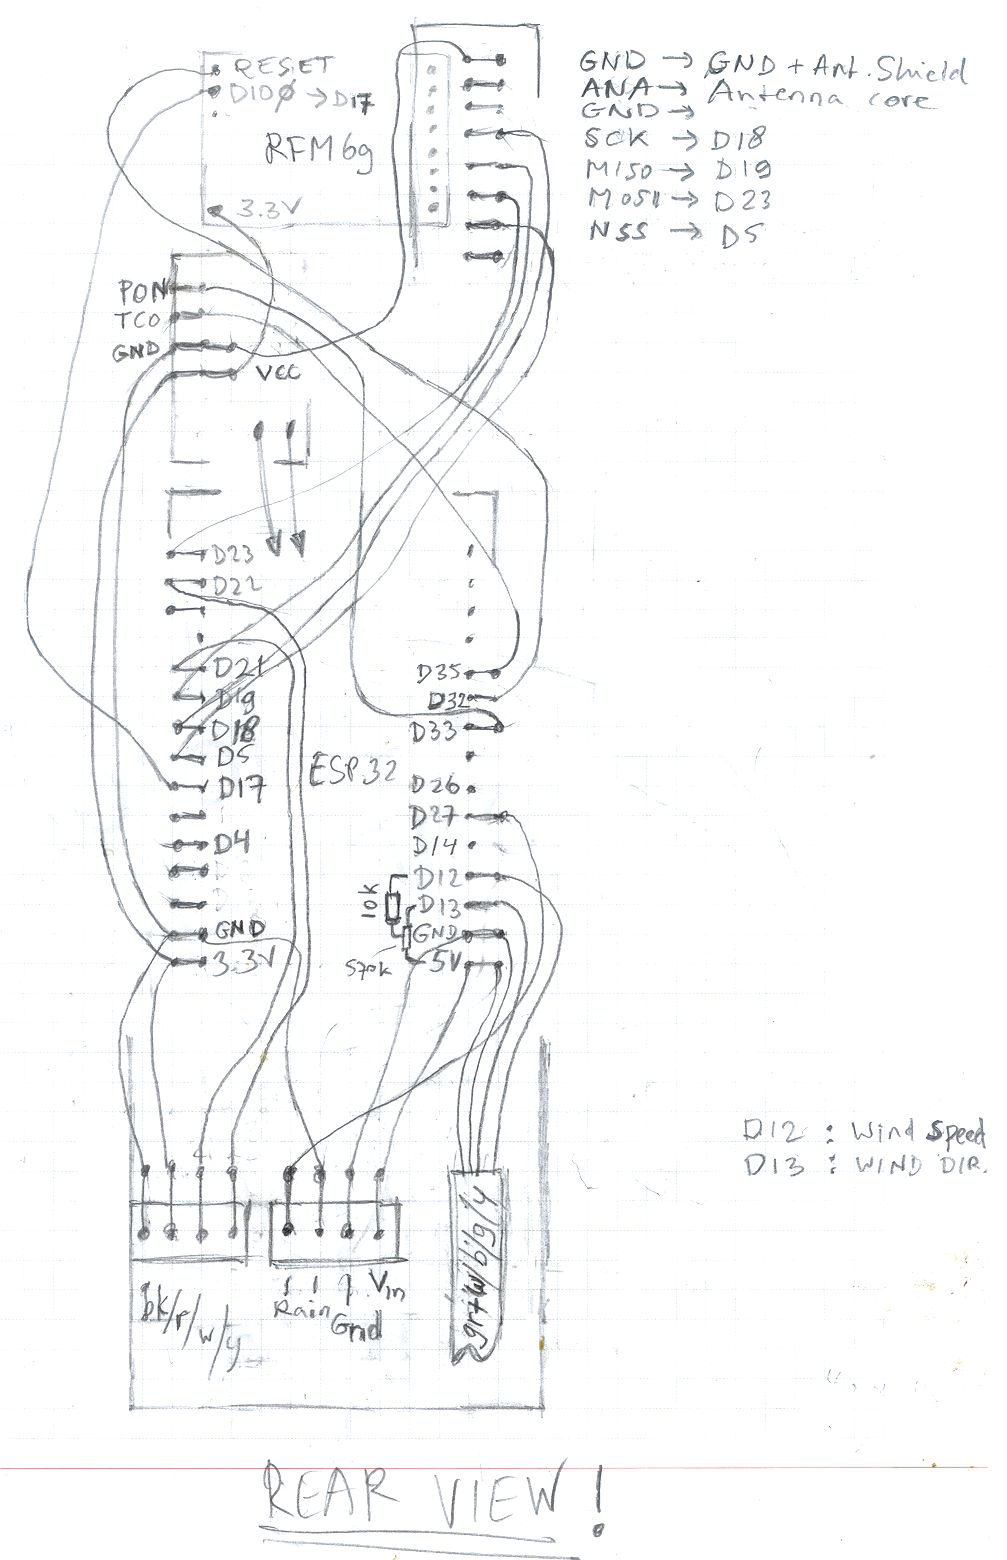 RESET
DIOØ → D17
RFM69
3.3V
GND → GND + Ant. Shield
ANA → Antenna core
GND →
SCK → D18
MISO → D19
MOSI → D23
NSS → D5
PON
TCO
GND
VCC
D23
D22
D21
D19
D18
D5
D17
D4
GND
3.3V
ESP32
D35
D32
D33
D26
D27
D14
D12
D13
GND
5V
10k
570k
D12 : Wind Speed
D13 : WIND DIR.
bk/r/w/y
Rain
Gnd
Vin
gr+w/b/g/y
REAR VIEW!